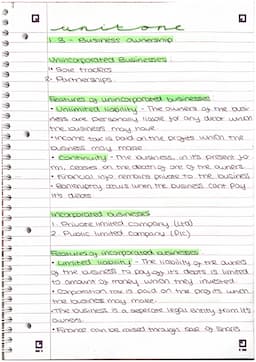 unit one
1.3 - Business ownership
Unincorporated Businesses
1. Sole traders
2. Partnerships
Features of unincorporated businesses
• Unlimited liability - The owners of the busi-
ness are personally liable for any debt which
the business may have
• Income tax is paid on the profits which the
business may make
• Continuity - The business, in its present fo-
rm, ceases on the death of one of the owners
• Financial info remains private to the business
• Bankruptcy occurs when the business can't pay
its debts
Incorporated businesses
1. Private limited company (Ltd)
2. Public limited company (Plc)
Features of incorporated businesses
• Limited liability - The liability of the owners
of the business to pay off its debts is limited
to amount of money which they invested
• Corporation tax is paid on the profits which
the business may make
• The business is a seperate legal entity from its
owners
• Finance can be raised through sale of shares